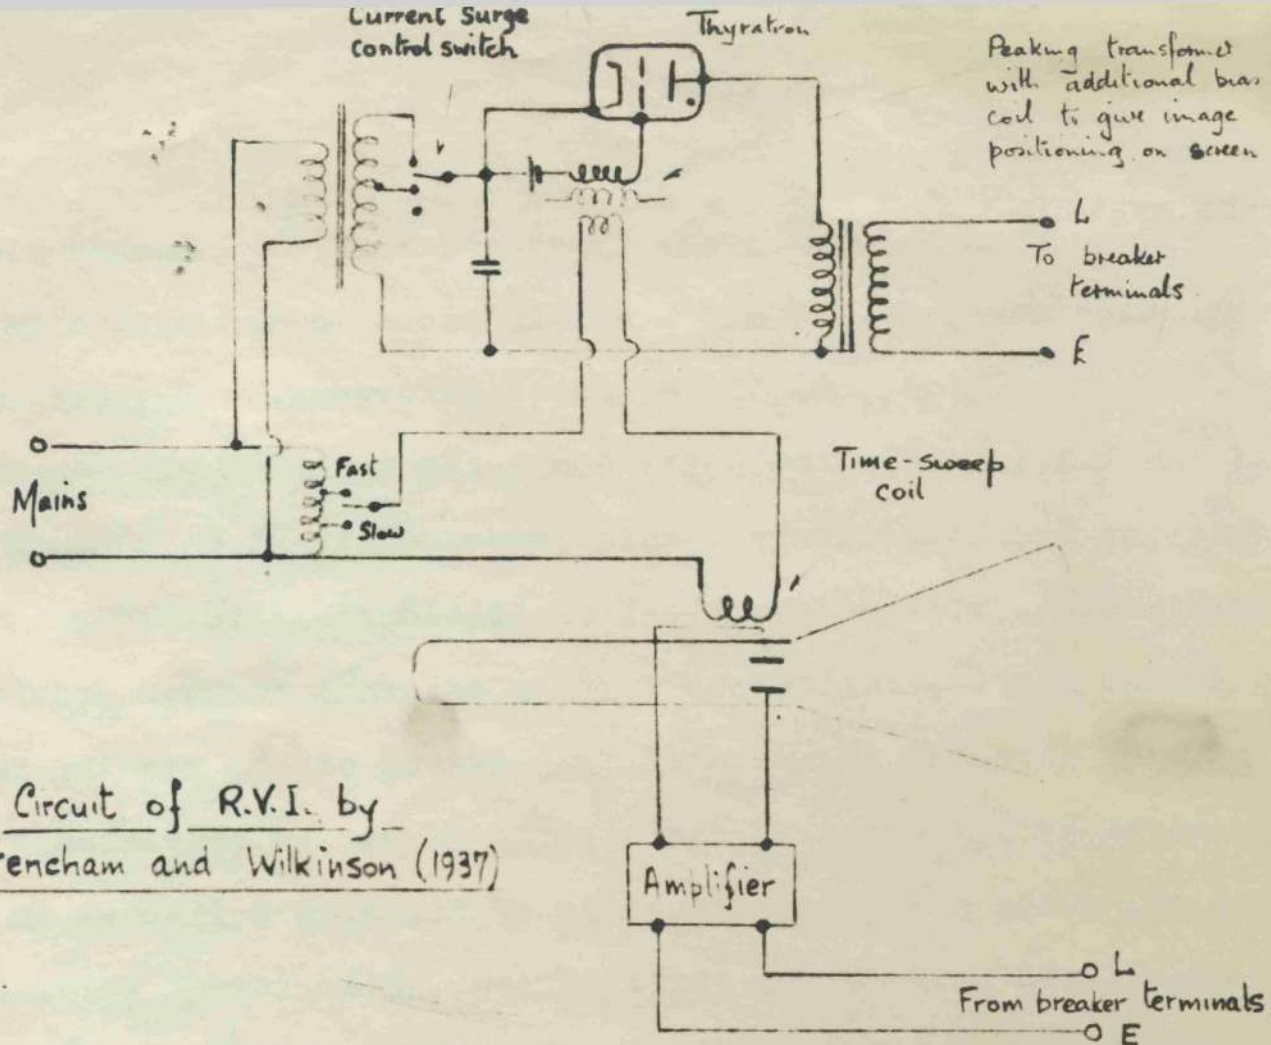 Current Surge
control switch
Thyratron
Peaking transformer
with additional bias
coil to give image
positioning on screen
L
To breaker
terminals
E
Mains
Fast
Slow
Time-sweep
coil
Circuit of R.V.I. by
encham and Wilkinson (1937)
Amplifier
L
From breaker terminals
E